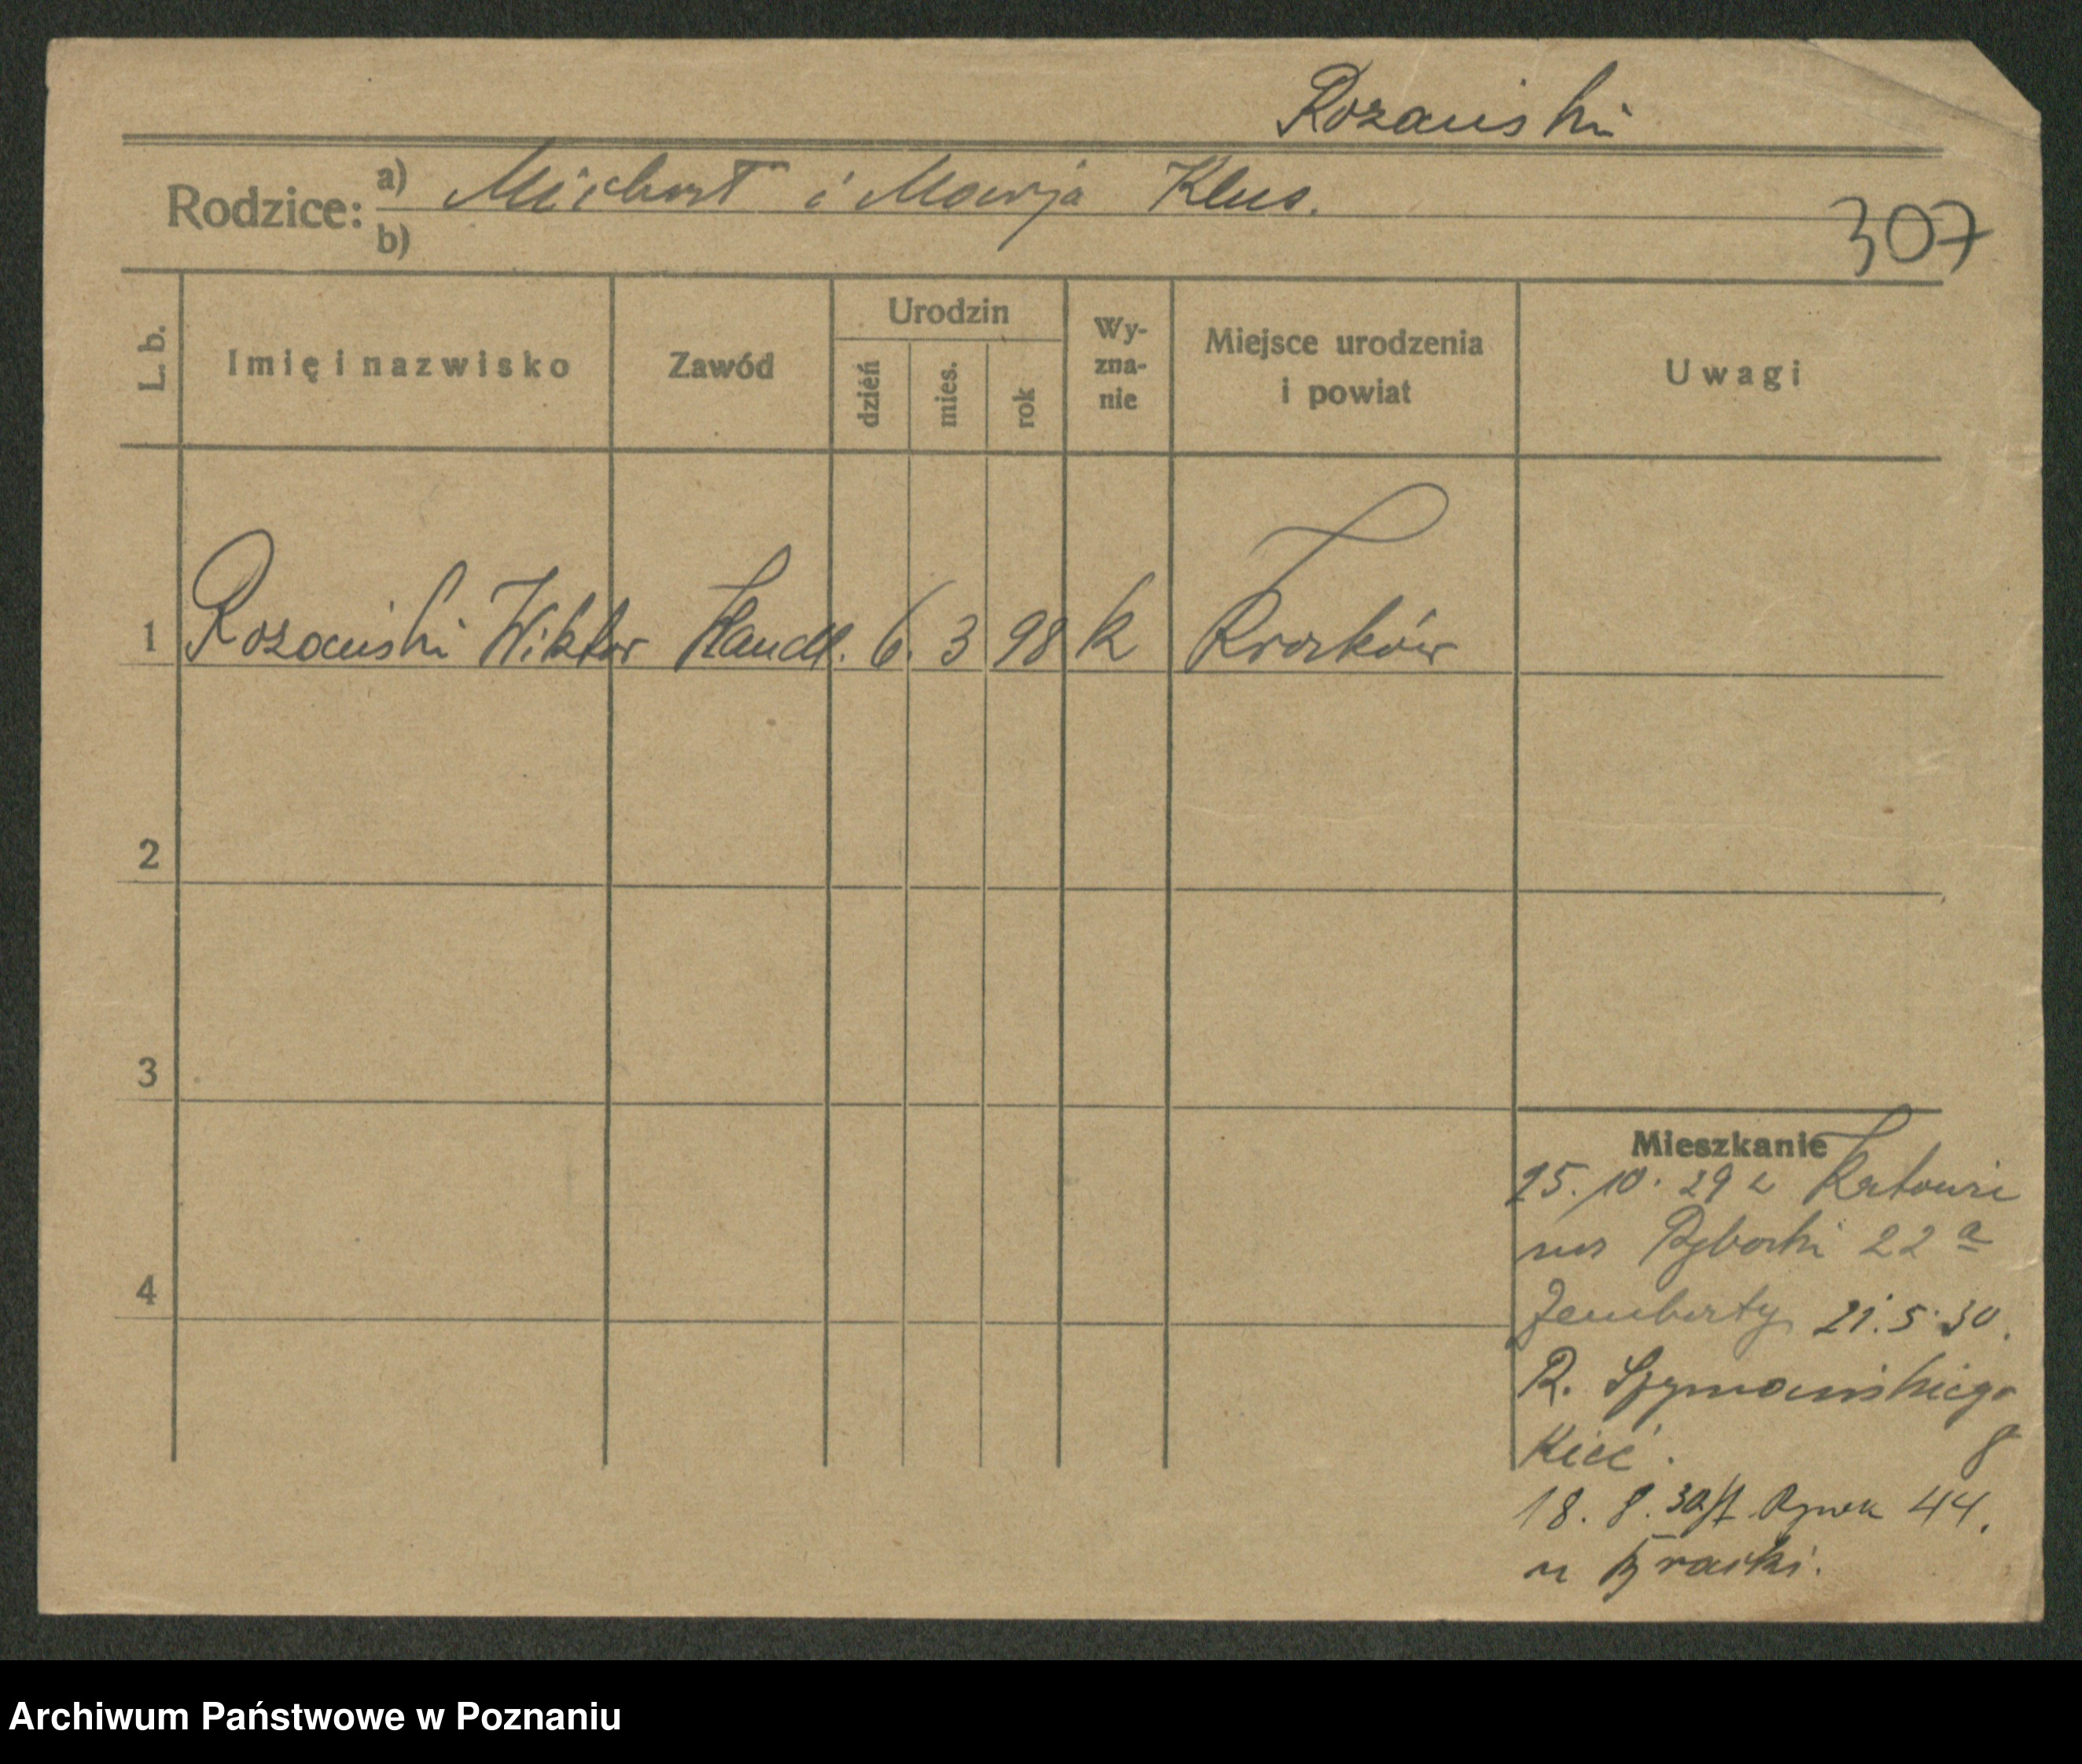 Rozański
Rodzice: a) Michał i Marja Klus.
b)
307
L. b. Imię i nazwisko Zawód Urodzin dzień mies. rok Wy-zna-nie Miejsce urodzenia i powiat Uwagi
1 Rozański Wiktor Handl. 6. 3 98 k Kraków
2
3
Mieszkanie
25. 10. 29 z Katowic
Rybaki 22 a
4
21. 5. 30.
R. Szymańskiego
8
18. 8. 30 St. Rynek 44.
u
Archiwum Państwowe w Poznaniu